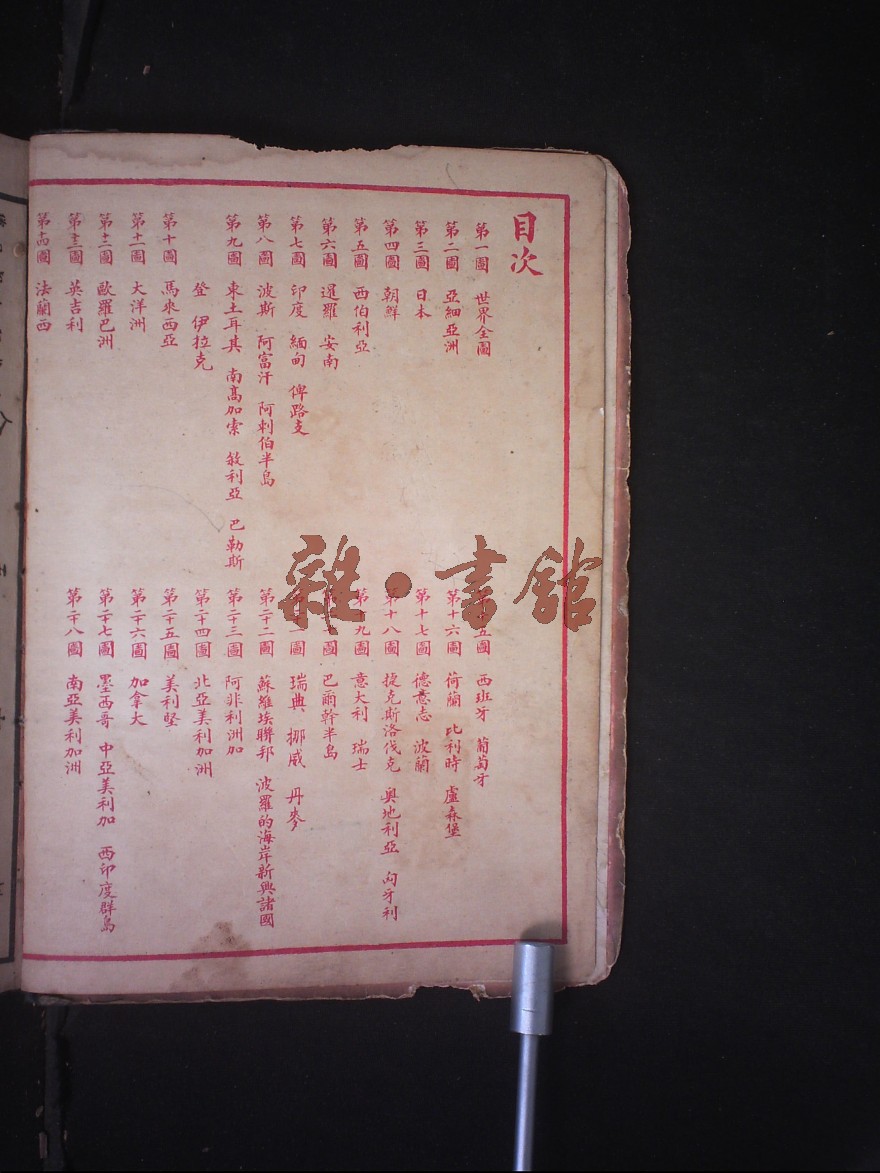 目次
第一圖 世界全圖
第二圖 亞細亞洲
第三圖 日本
第四圖 朝鮮
第五圖 西伯利亞
第六圖 暹羅 安南
第七圖 印度 緬甸 俾路支
第八圖 波斯 阿富汗 阿剌伯半島
第九圖 東土耳其 南高加索 敘利亞 巴勒斯
登 伊拉克
第十圖 馬來西亞
第十一圖 大洋洲
第十二圖 歐羅巴洲
第十三圖 英吉利
第十四圖 法蘭西
五圖 西班牙 葡萄牙
第十六圖 荷蘭 比利時 盧森堡
第十七圖 德意志 波蘭
第十八圖 捷克斯洛伐克 奧地利亞 匈牙利
第十九圖 意大利 瑞士
圖 巴爾幹半島
圖 瑞典 挪威 丹麥
第二十二圖 蘇維埃聯邦 波羅的海岸新興諸國
第二十三圖 阿非利洲加
第二十四圖 北亞美利加洲
第二十五圖 美利堅
第二十六圖 加拿大
第二十七圖 墨西哥 中亞美利加 西印度群島
第二十八圖 南亞美利加洲
雜·書館